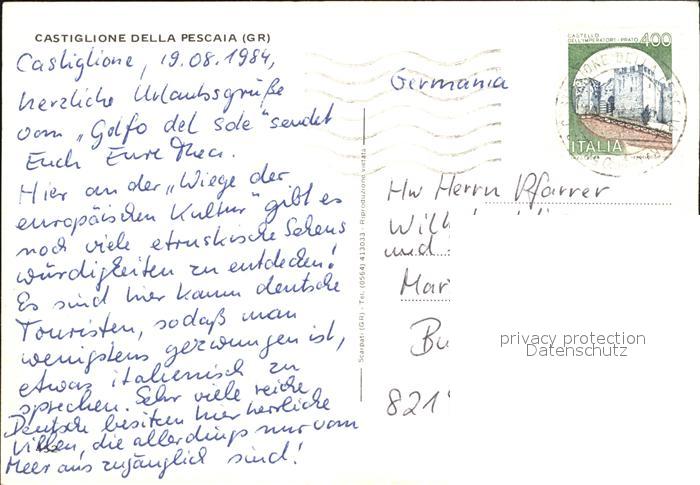 CASTIGLIONE DELLA PESCAIA (GR)
Castiglione, 19.08.1984,
herzliche Urlaubsgrüße
vom „Golfo del Sole" sendet
Euch Eure Thea.
Hier an der „Wiege der
europäischen Kultur" gibt es
noch viele etruskische Sehens
würdigkeiten zu entdecken!
Es sind hier kaum deutsche
Touristen, sodaß man
wenigstens gezwungen ist,
etwas italienisch zu
sprechen. Sehr viele reiche
Deutsche besitzen hier herrliche
Villen, die allerdings nur vom
Meer aus zugänglich sind!
Scarpati (GR) - Tel. (0564) 413033 - Riproduzione vietata
CASTELLO
DELL'IMPERATORE - PRATO 400
ITALIA
Germania
Herrn Pfarrer
und
privacy protection
Datenschutz
821